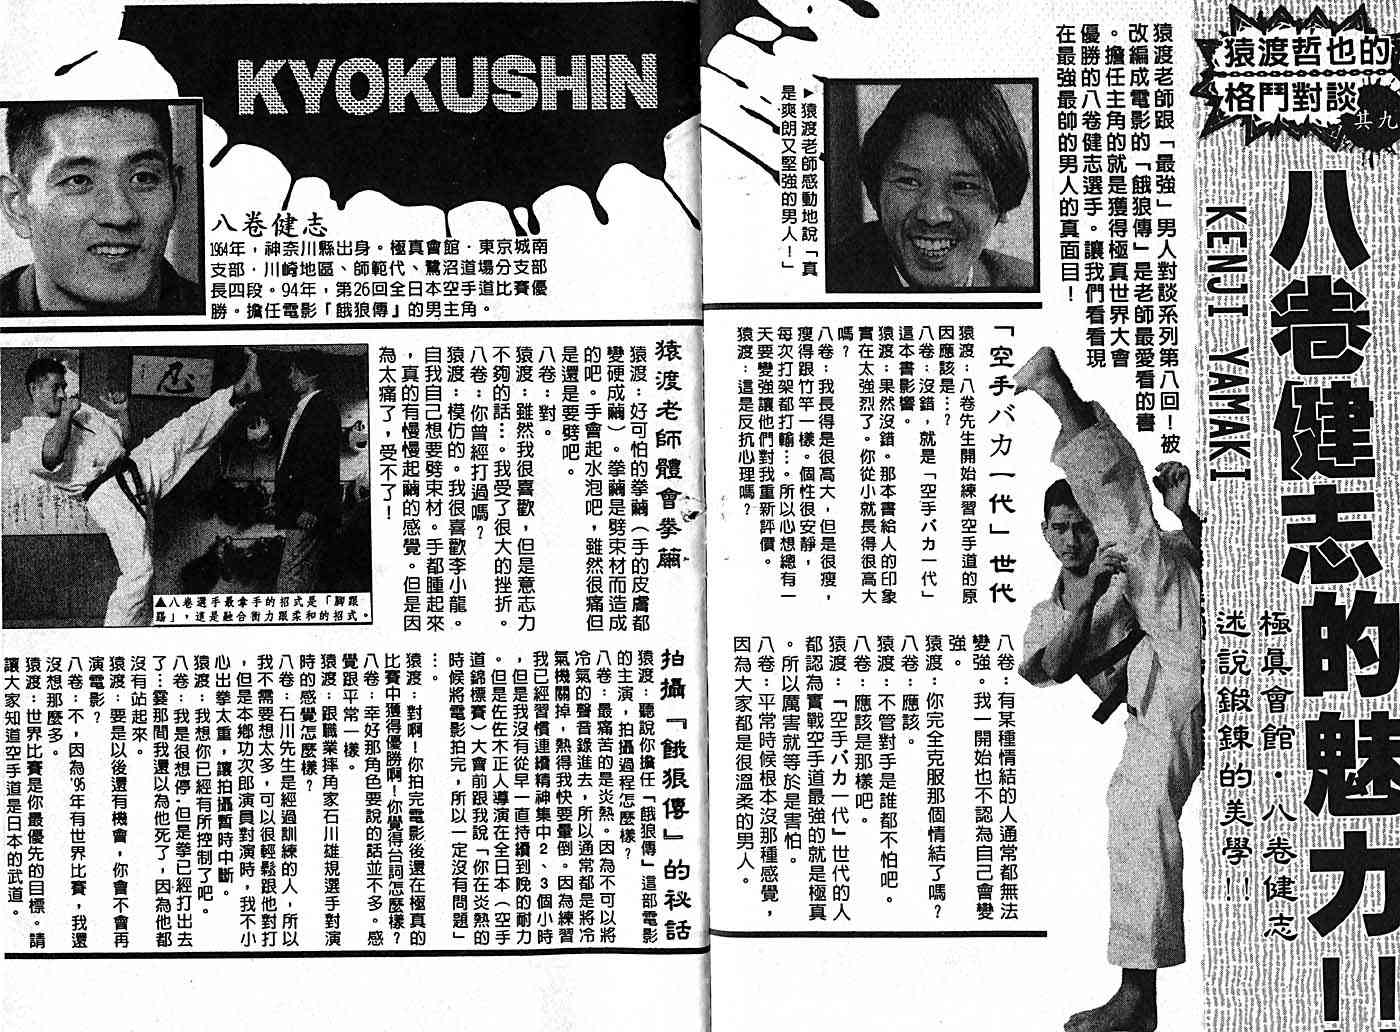 猿渡哲也的
格鬥對談
其九
八卷健志的魅力!!
KENJI YAMAKI
極真會館・八卷健志
迷說鍛鍊的美學!!
猿渡老師跟「最強」男人對談系列第八回!被
改編成電影的「餓狼傳」是老師最愛看的書
。擔任主角的就是獲得極真世界大會
優勝的八卷健志選手。讓我們看看現
在最強最帥的男人的真面目!
▶猿渡老師感動地說「真
是爽朗又堅強的男人!」
「空手バカ一代」世代
猿渡:八卷先生開始練習空手道的原
因應該是…?
八卷:沒錯,就是「空手バカ一代」
這本書影響。
猿渡:果然沒錯。那本書給人的印象
實在太強烈了。你從小就長得很高大
嗎?
八卷:我長得是很高大,但是很瘦,
瘦得跟竹竿一樣。個性很安靜,
每次打架都打輸…。所以心想總有一
天要變強讓他們對我重新評價。
猿渡:這是反抗心理嗎?
八卷:有某種情結的人通常都無法
變強。我一開始也不認為自己會變
強。
猿渡:你完全克服那個情結了嗎?
八卷:應該。
猿渡:不管對手是誰都不怕吧。
八卷:應該是那樣吧。
猿渡:「空手バカ一代」世代的人
都認為實戰空手道最強的就是極真
。所以厲害就等於是害怕。
八卷:平常時候根本沒那種感覺,
因為大家都是很溫柔的男人。
KYOKUSHIN
八卷健志
1964年,神奈川縣出身。極真會館・東京城南
支部・川崎地區、師範代、鷺沼道場分支部
長四段。94年,第26回全日本空手道比賽優
勝。擔任電影「餓狼傳」的男主角。
猿渡老師體會拳繭
猿渡:好可怕的拳繭(手的皮膚都
變硬成繭)。拳繭是劈束材而造成
的吧。手會起水泡吧,雖然很痛但
是還是要劈吧。
八卷:對。
猿渡:雖然我很喜歡,但是意志力
不夠的話…。我受了很大的挫折。
八卷:你曾經打過嗎?
猿渡:模仿的。我很喜歡李小龍。
自我自己想要劈束材。手都腫起來
,真的有慢慢起繭的感覺。但是因
為太痛了,受不了!
忍
▲八卷選手最拿手的招式是「腳跟
踢」,這是融合衝力跟柔和的招式。
拍攝『餓狼傳』的祕話
猿渡:聽說你擔任「餓狼傳」這部電影
的主演,拍攝過程怎麼樣?
八卷:最痛苦的是炎熱。因為不可以將
冷氣的聲音錄進去,所以通常都是將冷
氣機關掉,熱得我快要暈倒。因為練習
我已經習慣連續精神集中2、3個小時
,但是我沒有從早一直持續到晚的耐力
。但是佐佐木正人導演在全日本(空手
道錦標賽)大會前跟我說「你在炎熱的
時候將電影拍完,所以一定沒有問題」
…。
猿渡:對啊!你拍完電影後還在極真的
比賽中獲得優勝啊!你覺得台詞怎麼樣?
八卷:幸好那角色要說的話並不多。感
覺跟平常一樣。
猿渡:跟職業摔角家石川雄規選手對演
時的感覺怎麼樣?
八卷:石川先生是經過訓練的人,所以
我不需要想太多,可以很輕鬆跟他對打
,但是本鄉功次郎演員對演時,我不小
心出拳太重,讓拍攝暫時中斷。
猿渡:我想你已經有所控制了吧。
八卷:我是很想停,但是拳已經打出去
了…霎那間我還以為他死了,因為他都
沒有站起來。
猿渡:要是以後還有機會,你會不會再
演電影?
八卷:不,因為'95年有世界比賽,我還
沒想那麼多。
猿渡:世界比賽是你最優先的目標。請
讓大家知道空手道是日本的武道。